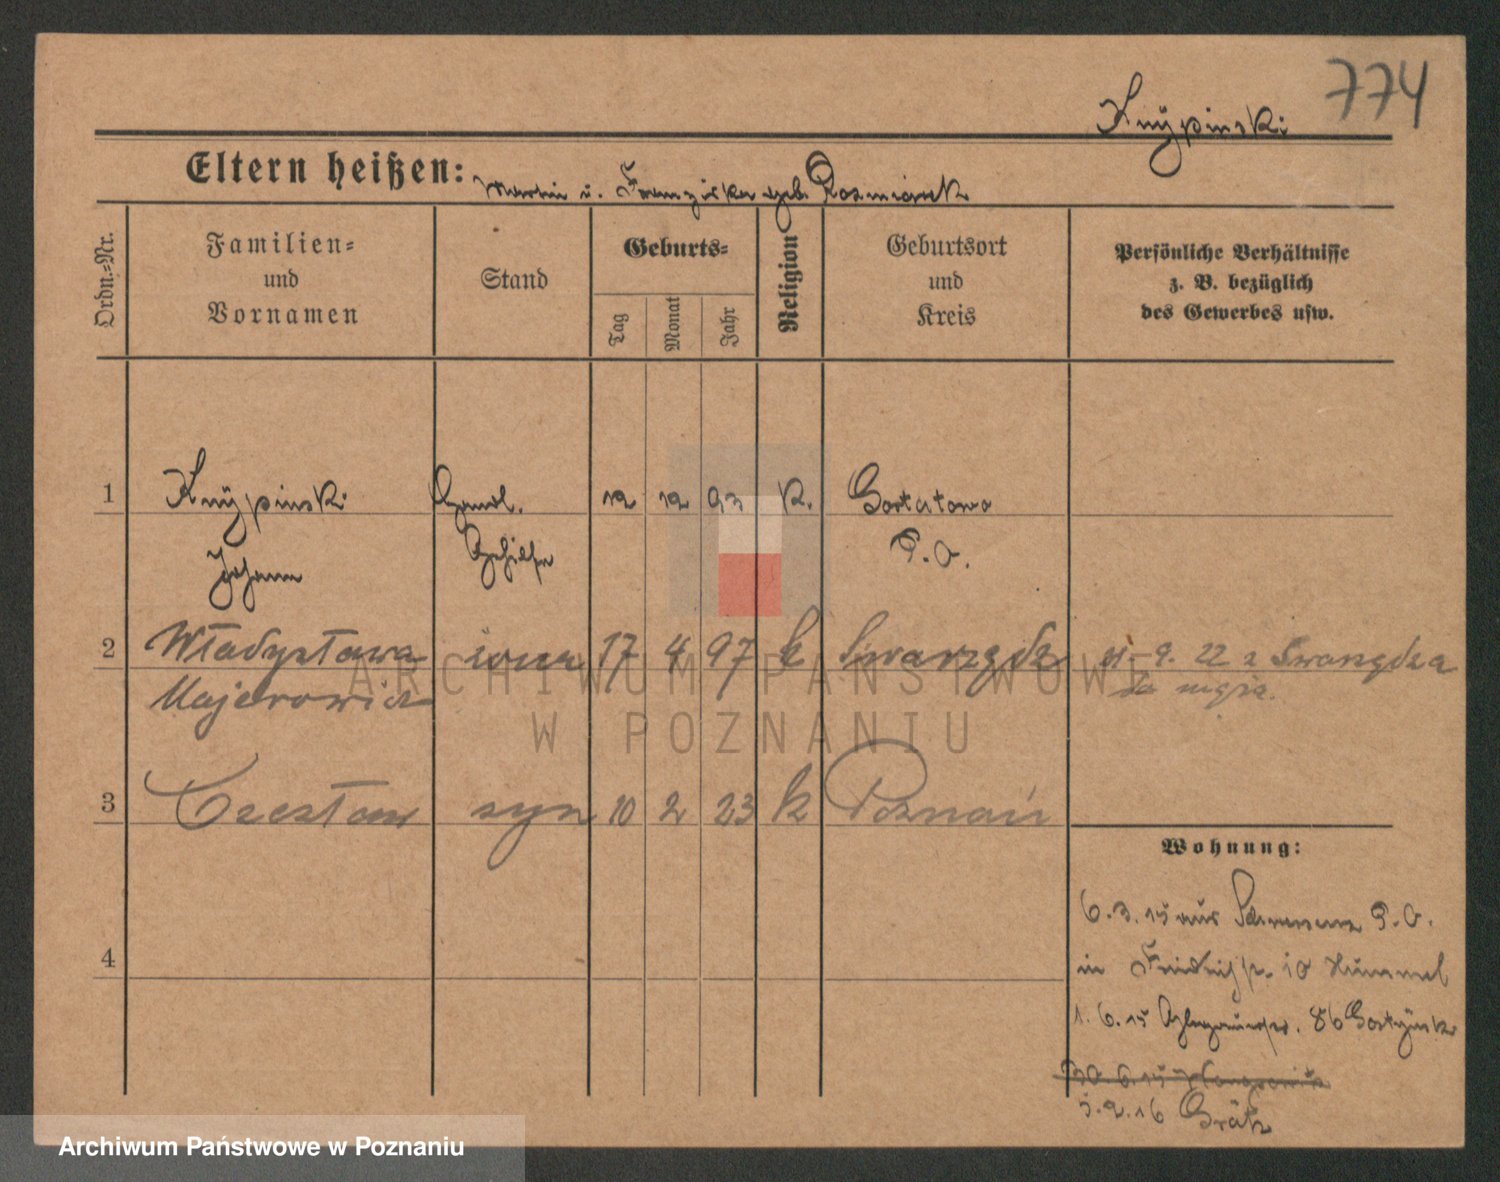 774
Knÿpinski
Eltern heißen: Martin u. Franziska geb. Rozmiarek
Ordn.=Nr.
Familien=
und
Vornamen
Stand
Geburts=
Tag
Monat
Jahr
Religion
Geburtsort
und
Kreis
Persönliche Verhältnisse
z. B. bezüglich
des Gewerbes usw.
1 Knÿpinski Handl. 12 12 93 K. Gortatowo
Johann Gehilfe P. O.
2 Władysława żona 17 4 97 k Swarzędz 9. 22 z Swarzędza
Majerowicz do męża.
3 Czesław syn 10 2 23 k Poznań
4
Wohnung:
6.3.15 aus P. O.
in 10 Hummel
1.6.15 86
30.6.15
5.2.16 Grätz
ARCHIWUM PAŃSTWOWE
W POZNANIU
Archiwum Państwowe w Poznaniu